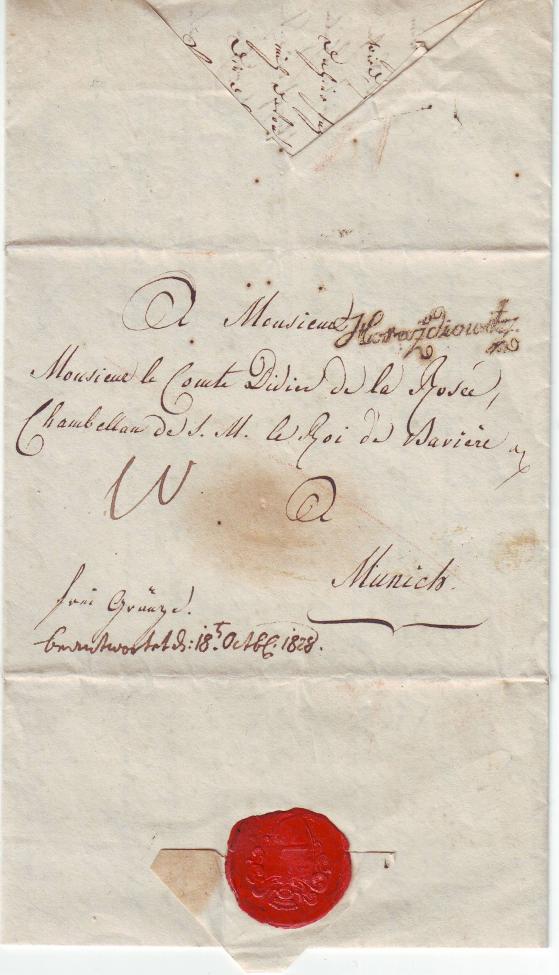 A Monsieur
Horazdiowitz
Monsieur le Comte Divin de la Rosée,
Chambellan de S. M. le Roi de Bavière
A
Munich.
frei Gränze.
beantwortet d: 18t Octbr. 1828.